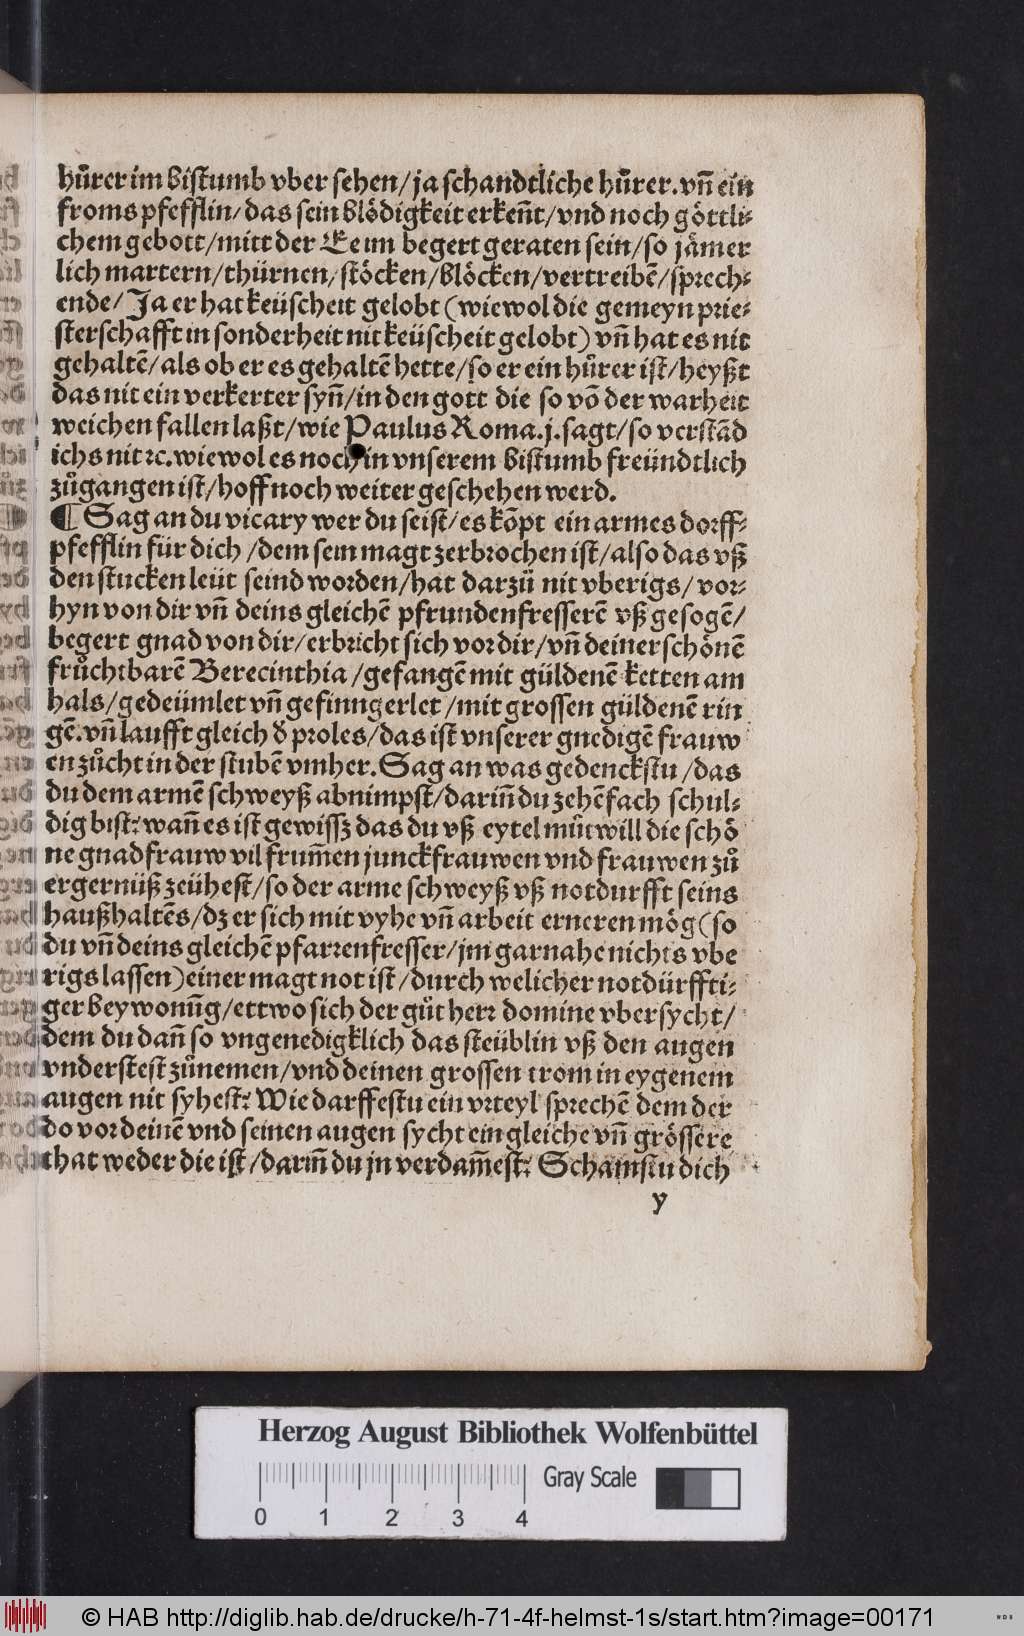 hůrer im bistumb vber sehen/ ja schandtliche hůrer. vñ ein
froms pfefflin/ das sein blödigkeit erkeñt/ vnd noch göttli⸗
chem gebott/ mitt der Ee im begert geraten sein/ so jämer
lich martern/ thürnen/ stöcken/ blöcken/ vertreibē/ sprech⸗
ende/ Ja er hat keüscheit gelobt (wiewol die gemeyn prie⸗
sterschafft in sonderheit nit keüscheit gelobt) vñ hat es nit
gehaltē/ als ob er es gehaltē hette/ so er ein hůrer ist/ heyßt
das nit ein verkerter syñ/ in den gott die so vō der warheit
weichen fallen laßt/ wie Paulus Roma. j. sagt/ so verstād
ichs nit ꝛc. wiewol es noch in vnserem bistumb freündtlich
zůgangen ist/ hoff noch weiter geschehen werd.
¶ Sag an du vicary wer du seist/ es kōpt ein armes dorff⸗
pfefflin für dich/ dem sein magt zerbrochen ist/ also das vß
den stucken leüt seind worden/ hat darzů nit vberigs/ vor⸗
hyn von dir vñ deins gleichē pfrundenfresserē vß gesogē/
begert gnad von dir/ erbricht sich vor dir/ vñ deiner schönē
frůchtbarē Berecinthia/ gefangē mit güldenē ketten am
hals/ gedeümlet vñ gefinngerlet/ mit grossen güldenē rin
gē. vñ laufft gleich đ proles/ das ist vnserer gnedigē frauw
en zůcht in der stubē vmher. Sag an was gedenckstu/ das
du dem armē schweyß abnimpst/ dariñ du zehēfach schul⸗
dig bist: wañ es ist gewissz das du vß eytel můtwill die schö
ne gnadfrauw vil frum̄en junckfrauwen vnd frauwen zů
ergernüß zeühest/ so der arme schweyß vß notdurfft seins
haußhaltēs/ dz er sich mit vyhe vñ arbeit erneren mög (so
du vñ deins gleichē pfarrenfresser/ jm gar nahe nichts vbe
rigs lassen) einer magt not ist/ durch welicher notdürffti⸗
ger beywonūg/ ettwo sich der gůt herr domine vbersycht/
dem du dañ so vngenedigklich das steüblin vß den augen
vnderstest zůnemen/ vnd deinen grossen trom in eygenem
augen nit syhest: Wie darffestu ein vrteyl sprechē dem der
do vor deinē vnd seinen augen sycht ein gleiche vñ grössere
that weder die ist/ dariñ du jn verdam̄est: Schamstu dich
y
Herzog August Bibliothek Wolfenbüttel
Gray Scale
0 1 2 3 4
© HAB http://diglib.hab.de/drucke/h-71-4f-helmst-1s/start.htm?image=00171